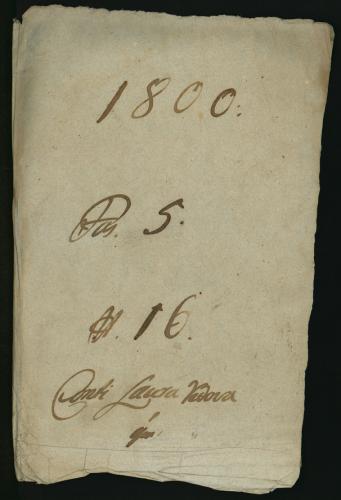 1800.
Pos. 5.
N. 16.
Conti Laura Vedova